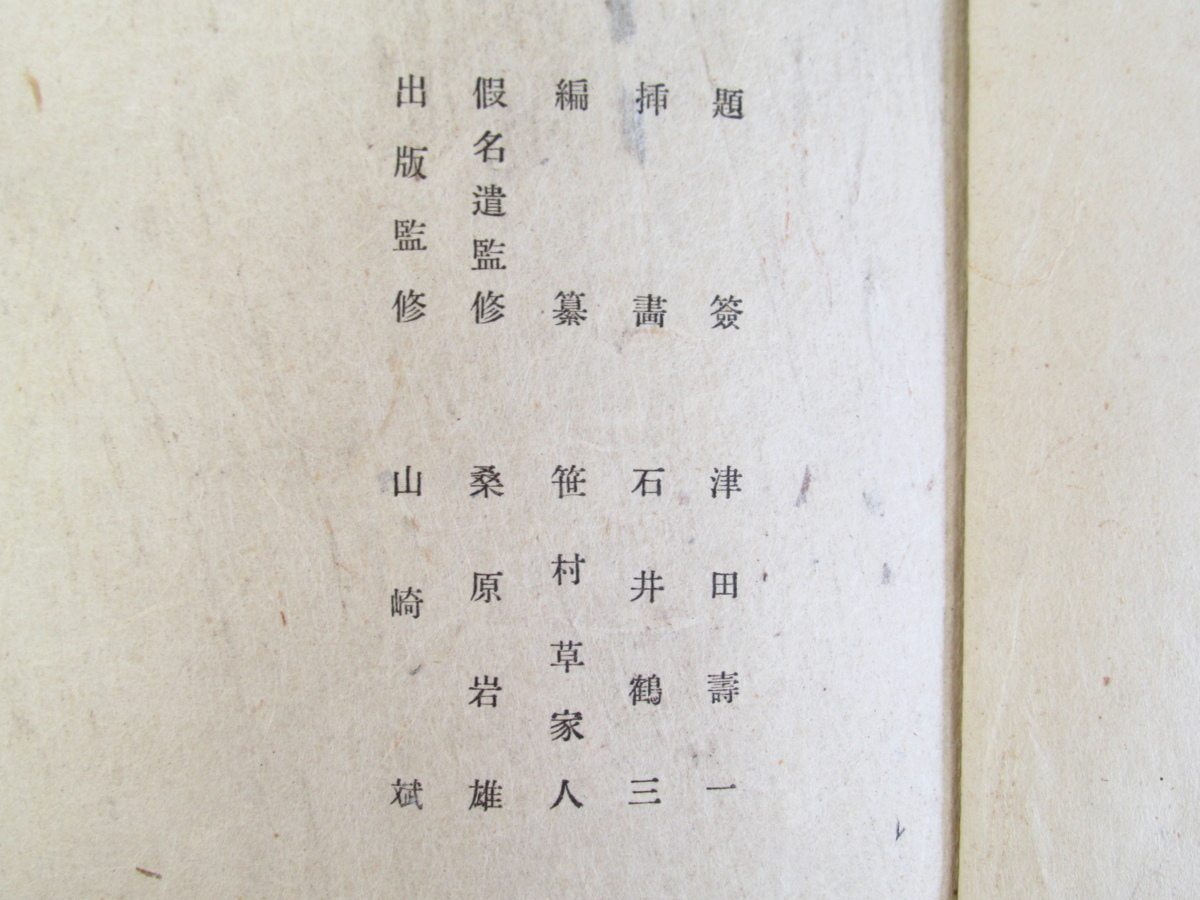 題簽 津田壽一
挿畫 石井鶴三
編纂 笹村草家人
假名遣監修 桑原岩雄
出版監修 山崎斌